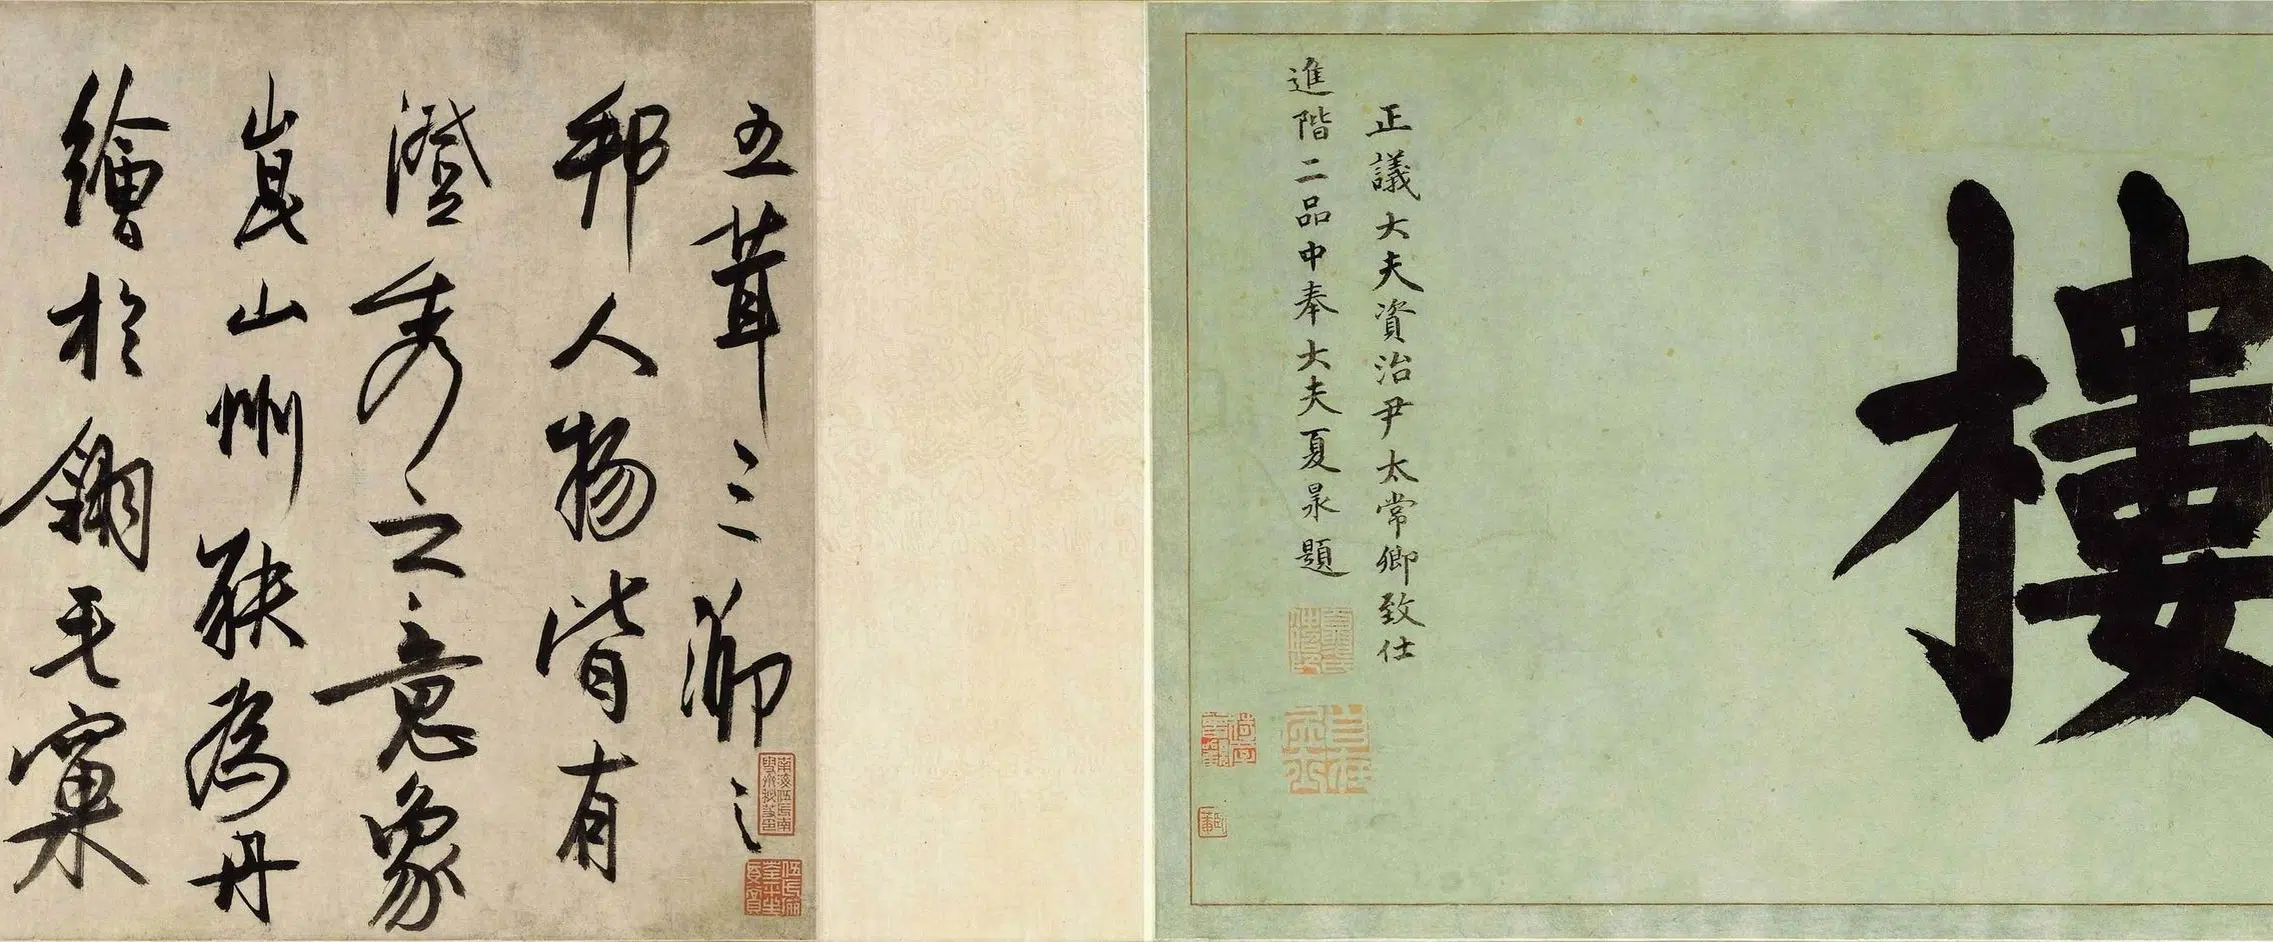 樓
正議大夫資治尹太常卿致仕
進階二品中奉大夫夏昶題
五茸三泖之
邦人物皆有
澄秀之意象
崑山州為丹
繪於毛窠